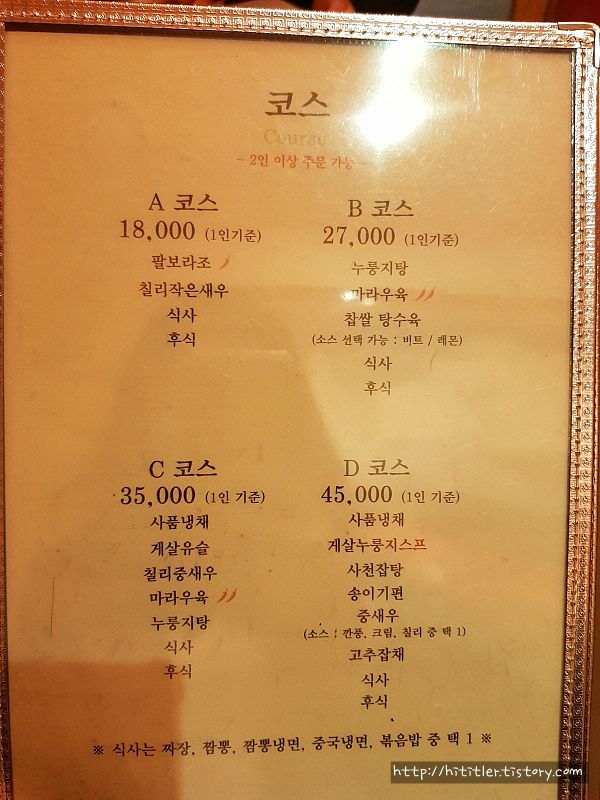 코스
Course
- 2인 이상 주문 가능 -
A 코스
18,000 (1인기준)
팔보라조
칠리작은새우
식사
후식
B 코스
27,000 (1인기준)
누룽지탕
마라우육
찹쌀 탕수육
(소스 선택 가능 : 비트 / 레몬)
식사
후식
C 코스
35,000 (1인 기준)
사품냉채
게살유슬
칠리중새우
마라우육
누룽지탕
식사
후식
D 코스
45,000 (1인 기준)
사품냉채
게살누룽지스프
사천잡탕
송이기편
중새우
(소스 : 깐풍, 크림, 칠리 중 택 1)
고추잡채
식사
후식
※ 식사는 짜장, 짬뽕, 짬뽕냉면, 중국냉면, 볶음밥 중 택 1 ※
http://hititler.tistory.com